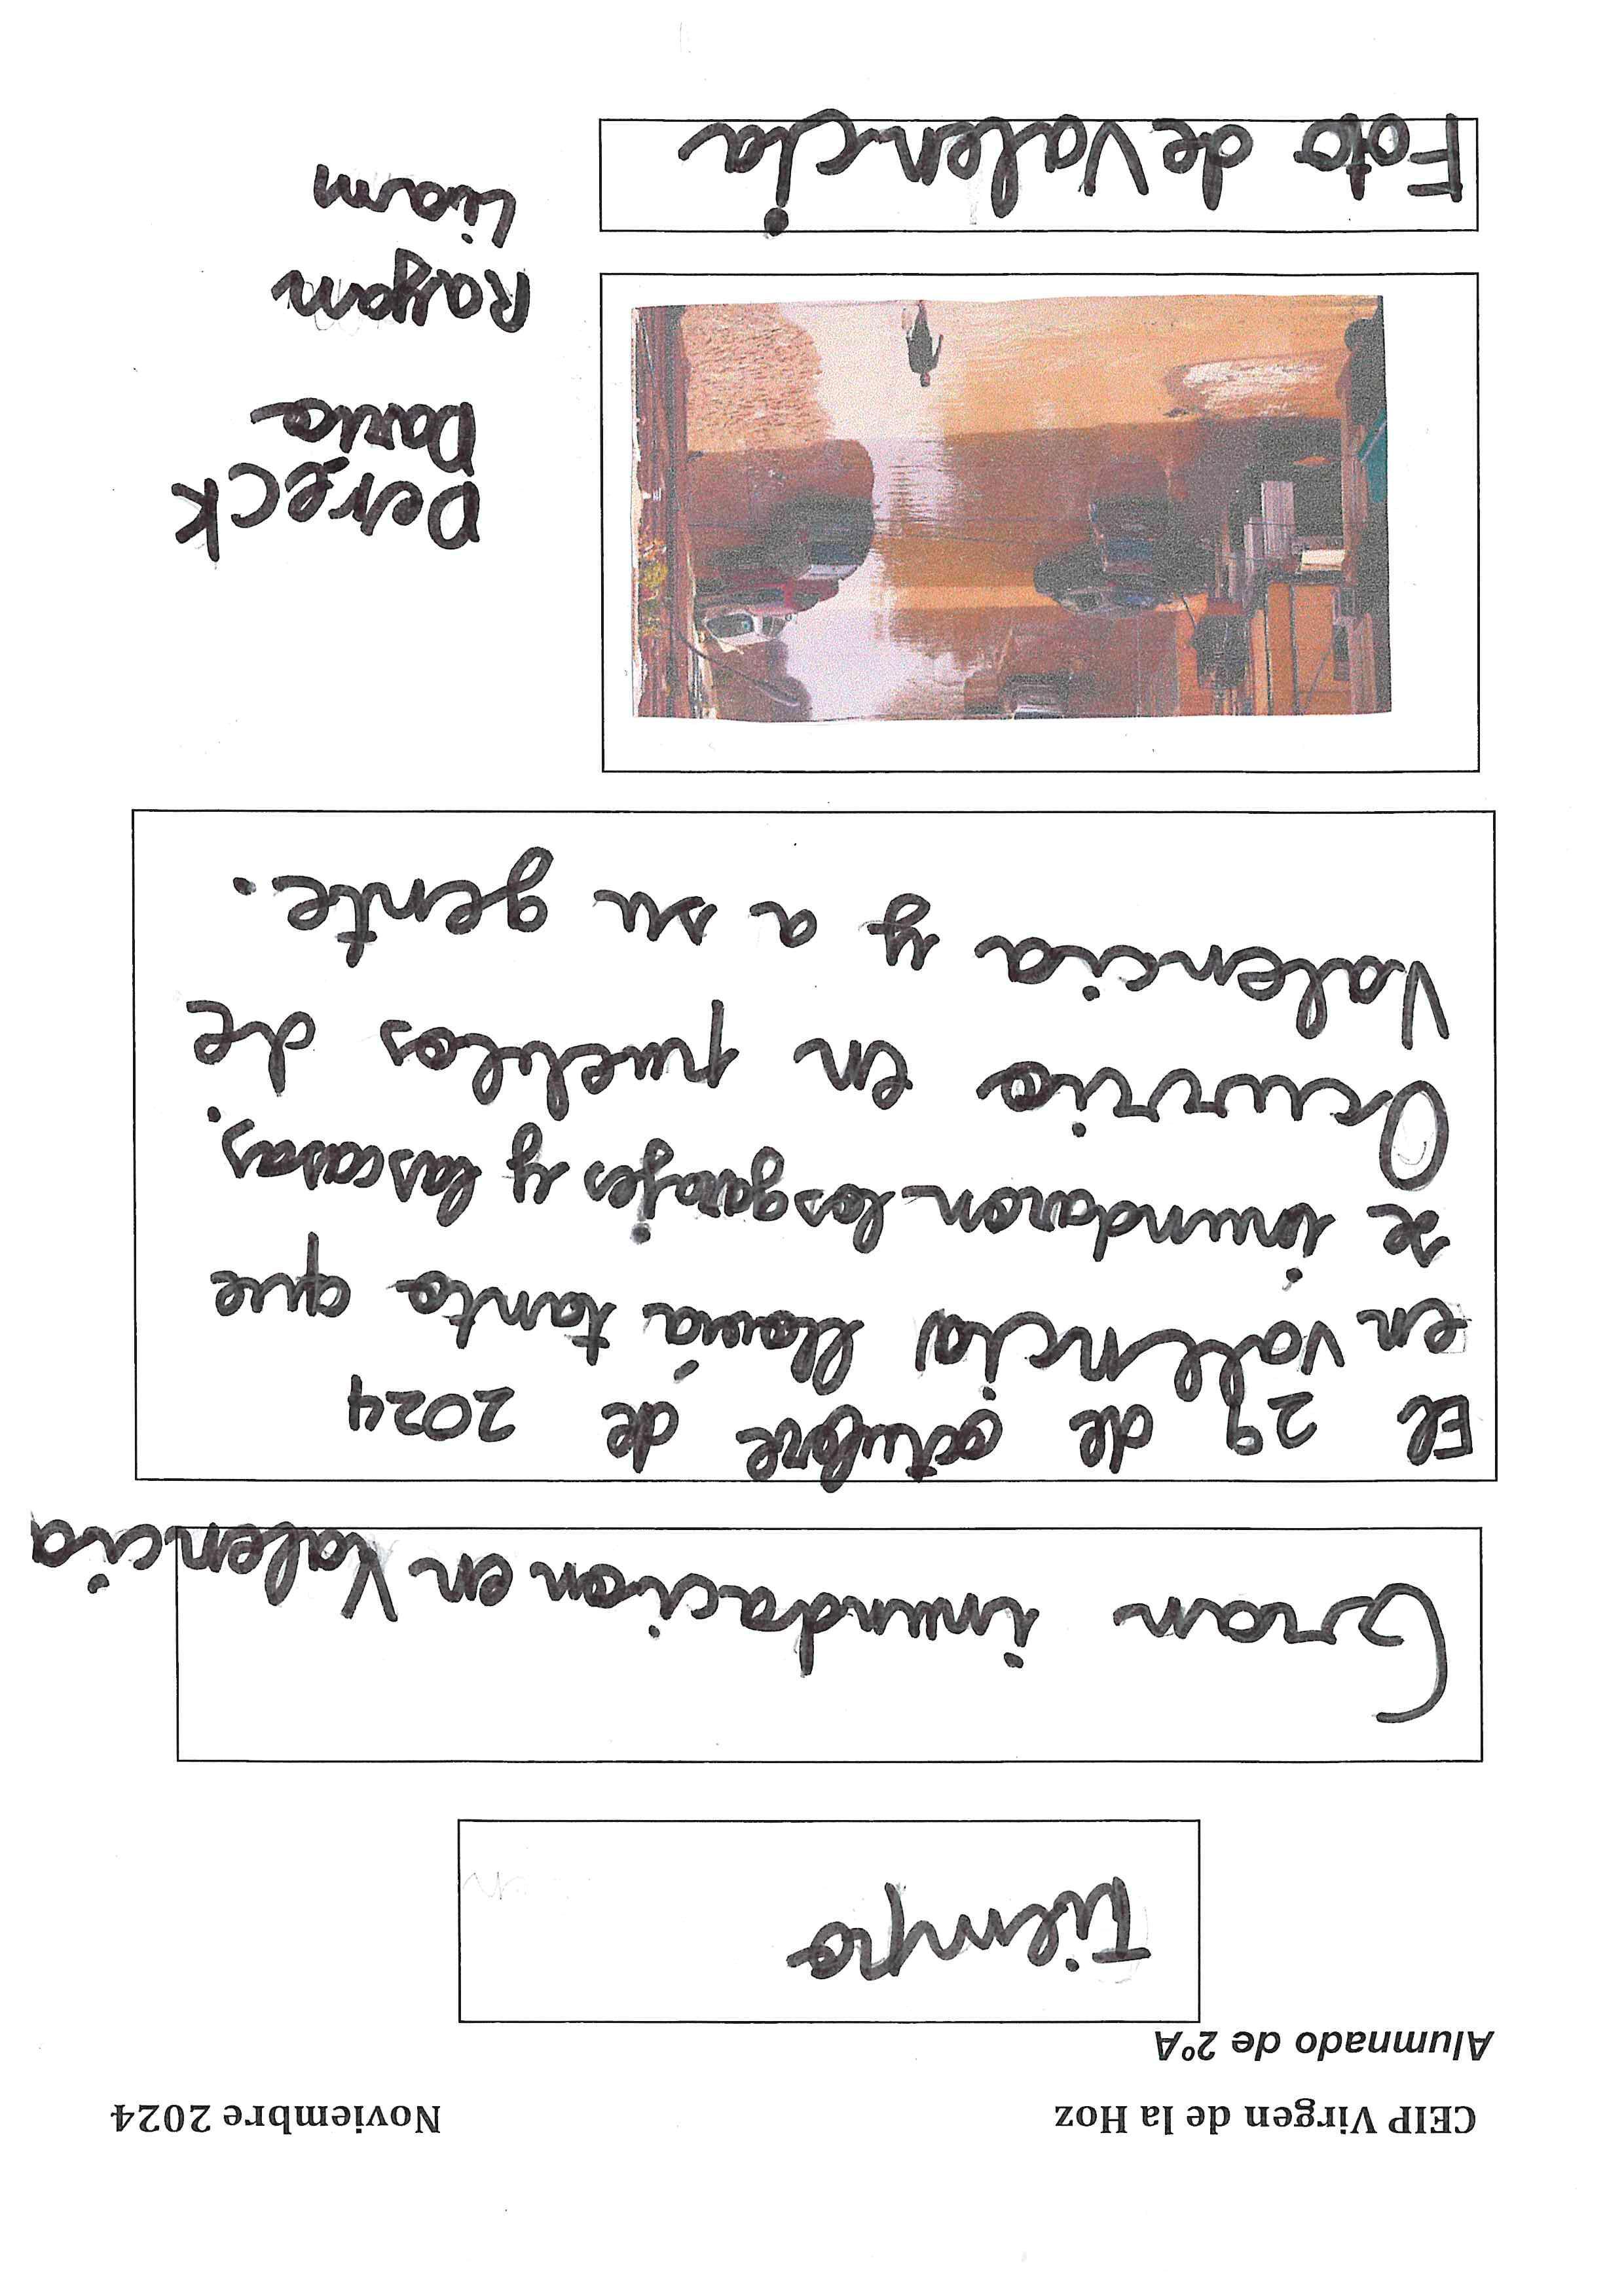 CEIP Virgen de la Hoz Noviembre 2024
Alumnado de 2ºA
Tiempo
Gran inundacion en Valencia
El 29 de octubre de 2024
en Valencia llovia tanto que
se inundaron los garajes y las casas.
Ocurrio en pueblos de
Valencia y a su gente.
Dereck
Dario
Rayan
Liam
Foto de Valencia